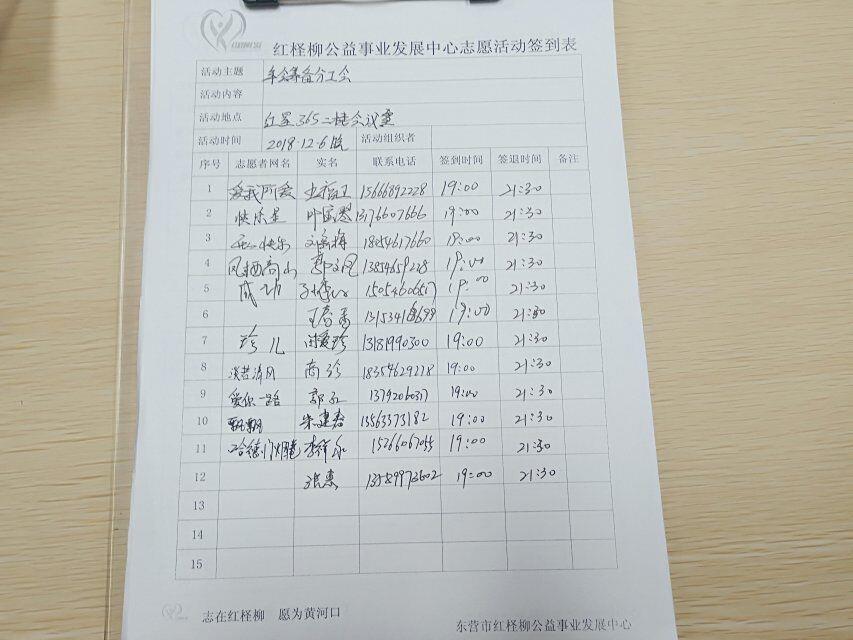 红柽柳公益事业发展中心志愿活动签到表
活动主题 年会筹备分工会
活动内容
活动地点 红星365二楼会议室
活动时间 2018.12.6晚 活动组织者
序号 志愿者网名 实名 联系电话 签到时间 签退时间 备注
1 爱我所爱 15666892228 19:00 21:30
2 快乐星 13176607666 19:00 21:30
3 18054617660 19:00 21:30
4 凤栖高山 郭文凤 13854659228 19:00 21:30
5 成功 19:00 21:30
6 19:00 21:30
7 珍儿 13181990300 19:00 21:30
8 淡若清风 商珍 18354629218 19:00 21:30
9 爱你一路 郭红 19:00 21:30
10 飘飘 朱建春 13563373182 19:00 21:30
11 15266067055 19:00 21:30
12 张惠 13589973602 19:00 21:30
13
14
15
志在红柽柳 愿为黄河口
东营市红柽柳公益事业发展中心